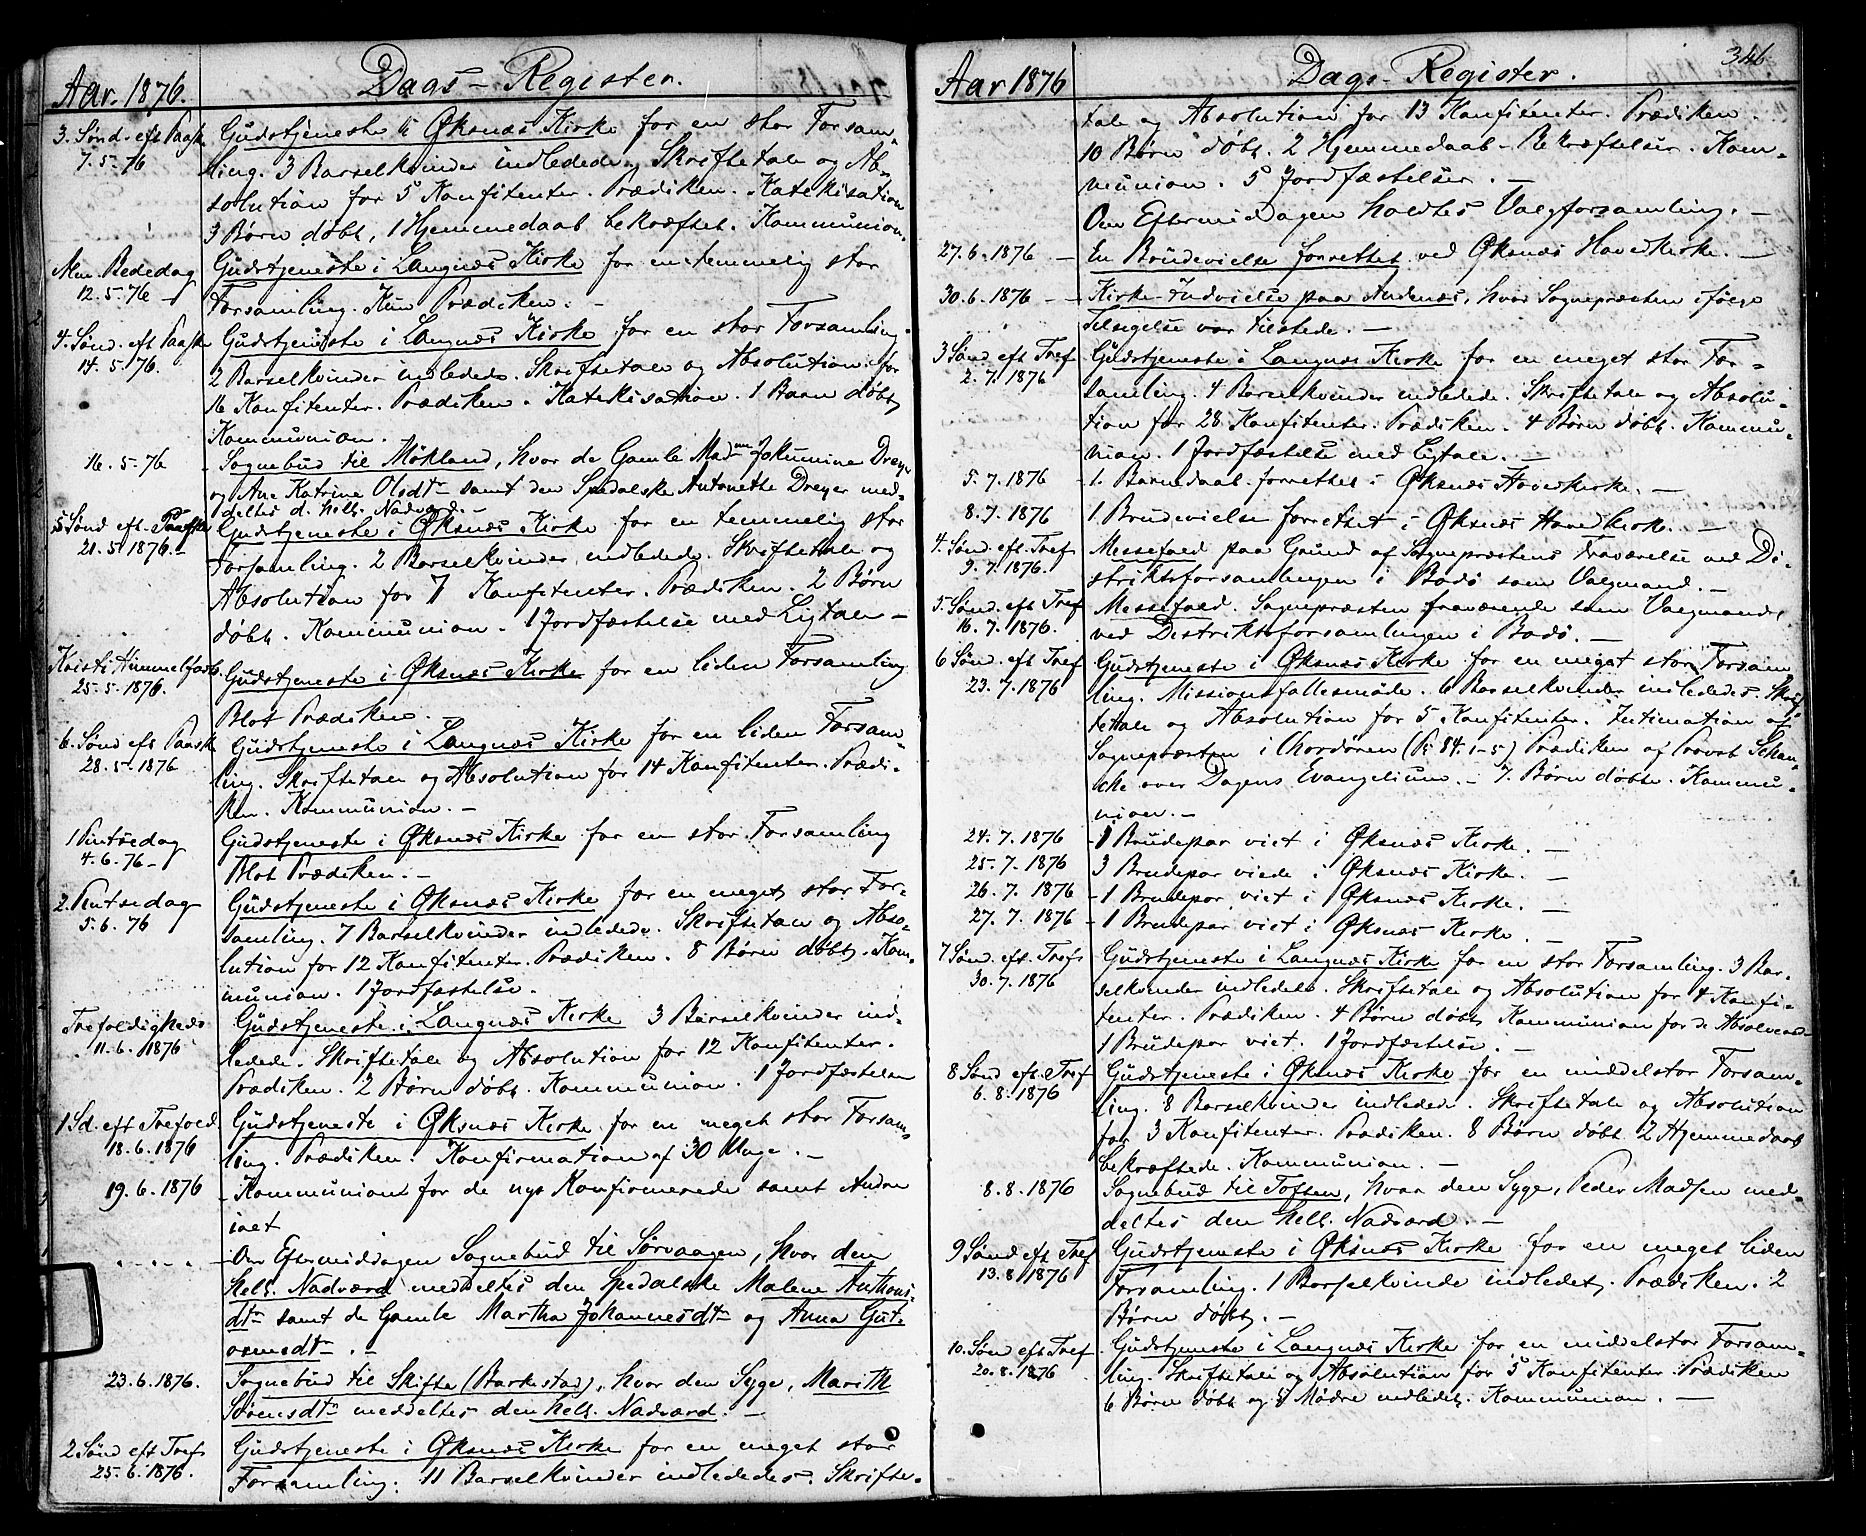 Aar. 1876.
Dags-Register.
3. Sønd. eft Paaske
7.5.76
Gudstjeneste i Øksnæs Kirke for en stor Forsam-
ling. 3 Barselkvinder indledede. Skriftetale og Ab-
solution for 5 Konfitenter. Prædiken. Katekisation
3 Børn døbt, 1 Hjemmedaab bekræftet. Kommunion.
Alm. Bededag
12.5.76 –
Gudstjeneste i Langnæs Kirke for en temmelig stor
Forsamling. Kun Prædiken. –
4. Sønd. eft Paaske
14.5.76.
Gudstjeneste i Langnæs Kirke for en stor Forsamling
2 Barselkvinder indledede. Skriftetale og Absolution for
16 Konfitenter. Prædiken. Katekisation. 1 Barn døbt
Kommunion.
16.5.76
– Sognebud til Mökland, hvor de Gamle Madme Jokumine Dreyer
og Ane Katrine Olsdtr samt den Spedalske Antonette Dreyer med-
deltes d. hell. Nadverd. –
5. Sønd eft. Paaske
21.5.1876. –
Gudstjeneste i Øksnæs Kirke for en temmelig stor
Forsamling. 2 Barselkvinder indledede. Skriftetale og
Absolution for 7 Konfitenter. Prædiken. 2 Børn
døbt. Kommunion. 1 Jordfæstelse med Ligtale –
Kristi Himmelfarts
25.5.1876.
Gudstjeneste i Øksnæs Kirke for en liden Forsamling
Blot Prædiken.
6. Sønd eft Paaske
28.5.1876
Gudstjeneste i Langnæs Kirke for en liden Forsam-
ling. Skriftetale og Absolution for 14 Konfitenter. Prædi-
ken. Kommunion. –
1 Pintsedag
4.6.76 –
Gudstjeneste i Øksnæs Kirke for en stor Forsamling
Blot Prædiken. –
2. Pintsedag
5.6.76
Gudstjeneste i Øksnæs Kirke for en meget stor For-
samling. 7 Barselkvinder indledede. Skriftetale og Abso-
lution for 12 Konfitenter. Prædiken. 8 Børn døbt. Kom-
munion. 1 Jordfæstelse.
Trefoldigheds
11.6.1876
Gudstjeneste i Langnæs Kirke 3 Barselkvinder ind-
ledede. Skriftetale og Absolution for 12 Konfitenter.
Prædiken. 2 Børn døbt. Kommunion. 1 Jordfæstelse
1 Sd. eft Trefold
18.6.1876
Gudstjeneste i Øksnæs Kirke for en meget stor Forsam-
ling. Prædiken. Konfirmation af 30 Unge. –
19.6.1876
– Kommunion for de nys Konfirmerede samt Andre
iaet
. . . . .
– Om Eftermiddagen Sognebud til Sørvaagen, hvor den
hell. Nadverd meddeltes den Spedalske Malene Anthonis-
dtr samt de Gamle Martha Johannesdtr og Anna Gut-
ormsdtr. –
23.6.1876.
Sognebud til Skifte (Barkestad), hvor den Syge, Marith
Sörensdtr meddeltes den hell. Nadverd. –
2 Sønd eft Tref
25.6.1876.
Gudstjeneste i Øksnæs Kirke for en meget stor
Forsamling. 11 Barselkvinder indlededes. Skrifte-
346
Aar 1876
Dags-Register.
tale og Absolution for 13 Konfitenter. Prædiken.
10 Børn døbt. 2 Hjemmedaab-Bekræftelser. Kom-
munion. 5 Jordfæstelser. –
Om Eftermiddagen holdtes Valgforsamling. –
27.6.1876 –
En Brudevielse forrettet ved Øksnæs Hovedkirke. –
30.6.1876 –
– Kirke-Indvielse paa Andenæs, hvor Sognepræsten ifølge
Tilsigelse var tilstede. –
3 Sønd eft Tref
2.7.1876
Gudstjeneste i Langnæs Kirke for en meget stor For-
samling. 4 Barselkvinder indledede. Skriftetale og Absolu-
tion for 28 Konfitenter. Prædiken. 4 Børn døbt. Kommu-
nion. 1 Jordfæstelse med Ligtale. –
5.7.1876
– 1. Barnedaab forrettet i Øksnæs Hovedkirke. –
8.7.1876
1 Brudevielse forrettet i Øksnæs Hovedkirke. –
4. Sønd. eft. Tref
9.7.1876.
Messefald paa Grund af Sognepræstens Fraværelse ved Di-
striktsforsamlingen i Bodö som Valgmand. –
5. Sønd. eft Tref
16.7.1876.
Messefald. Sognepræsten fraværende som Valgmand
ved Distriktsforsamlingen i Bodö. –
6 Sønd. eft Tref
23.7.1876
Gudstjeneste i Øksnæs Kirke for en meget stor Forsam
ling. Missionsfællesmöde. 6 Barselkvinder indlededes. Skrif-
tetale og Absolution for 5 Konfitenter. Intimation af
Sognepræsten i Chordøren (Ps 84. 1-5) Prædiken af Provst Schan-
cke over Dagens Evangelium. – 7 Børn døbte. Kommu-
nion. –
24.7.1876
– 1 Brudepar viet i Øksnæs Kirke. –
25.7.1876
3 Brudepar viede i Øksnæs Kirke. –
26.7.1876
– 1 Brudepar viet i Øksnæs Kirke. –
27.7.1876
– 1 Brudepar viet i Øksnæs Kirke. –
7 Sønd. eft. Tref
30.7.1876
Gudstjeneste i Langnæs Kirke for en stor Forsamling. 3 Bar-
selkvinder indledede. Skriftetale og Absolution for 4 Konfi-
tenter. Prædiken. 4 Børn døbt Kommunion for de Absolverede
1 Brudepar viet. 1 Jordfæstelse. –
8 Sønd eft. Tref
6.8.1876
Gudstjeneste i Øksnæs Kirke for en middelstor Forsam-
ling. 8 Barselkvinder indledede. Skriftetale og Absolution
for 3 Konfitenter. Prædiken. 8 Børn døbt. 2 Hjemmedaab
bekræftede. Kommunion. –
8.8.1876
Sognebud til Toften, hvor den Syge, Peder Madsen med-
deltes den hell. Nadverd. –
9 Sønd eft Tref
13.8.1876
Gudstjeneste i Øksnæs Kirke for en meget liden
Forsamling. 1 Barselkvinde indledet. Prædiken. 2
Børn døbt. –
10. Sønd eft Tref
20.8.1876
Gudstjeneste i Langnæs Kirke for en middelstor Forsam-
ling. Skriftetale og Absolution for 5 Konfitenter. Prædiken
6 Børn døbt og 4 Mødre indledet. Kommunion. –